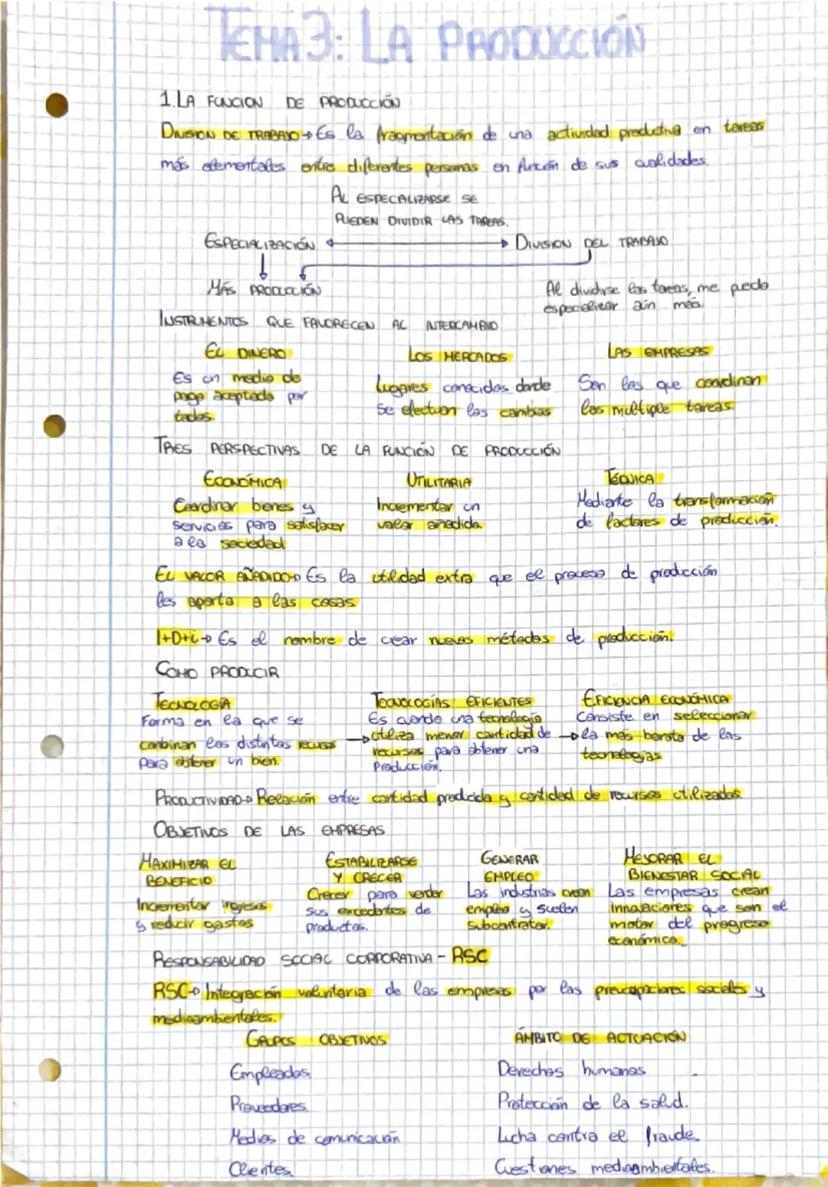 TEMA 3: LA PRODUCCIÓN
1. LA FUNCION DE PRODUCCIÓN
DIVISION DE TRABAJO → Es la fragmentación de una actividad productiva en tareas
más elementales entre diferentes personas en función de sus cualidades.
AL ESPECIALIZARSE SE
PUEDEN DIVIDIR LAS TAREAS.
ESPECIALIZACIÓN ↔ DIVISION DEL TRABAJO
MÁS PRODUCCIÓN
Al dividirse las tareas, me puedo
especializar aún más
INSTRUMENTOS QUE FAVORECEN AL INTERCAMBIO
EL DINERO LOS MERCADOS LAS EMPRESAS
Es un medio de
pago aceptado por
todos.
Lugares conocidos donde
se efectuan los cambios
Son las que coordinan
las multiple tareas.
TRES PERSPECTIVAS DE LA FUNCIÓN DE PRODUCCIÓN
ECONÓMICA UTILITARIA TÉCNICA
Coordinar bienes y
servicios para satisfacer
a la sociedad
Incrementar un
valor añadido.
Mediante la transformación
de factores de producción.
EL VALOR AÑADIDO → Es la utilidad extra que el proceso de producción
les aporta a las cosas
I+D+i → Es el nombre de crear nuevos métodos de producción.
COMO PRODUCIR
TECNOLOGÍA TECNOLOGÍAS EFICIENTES EFICIENCIA ECONÓMICA
Forma en la que se
combinan los distintos recursos
para obtener un bien.
Es cuando una tecnología
→ utiliza menor cantidad de
recursos para obtener una
Producción.
Consiste en seleccionar
→ la más barata de las
tecnologías
PRODUCTIVIDAD → Relación entre cantidad producida y cantidad de recursos utilizados
OBJETIVOS DE LAS EMPRESAS
MAXIMIZAR EL
BENEFICIO
Incrementar ingresos
y reducir gastos
ESTABILIZARSE
Y CRECER
Crecer para vender
sus excedentes de
productos.
GENERAR
EMPLEO
Las industrias crean
empleo y suelen
subcontratar.
MEJORAR EL
BIENESTAR SOCIAL
Las empresas crean
innovaciones que son el
motor del progreso
económico.
RESPONSABILIDAD SOCIAL CORPORATIVA - RSC
RSC → Integración voluntaria de las empresas por las preocupaciones sociales y
medioambientales.
GRUPOS OBJETIVOS ÁMBITO DE ACTUACIÓN
Empleados Derechos humanos
Proveedores Protección de la salud.
Medios de comunicación Lucha contra el fraude.
Clientes Cuestiones medioambientales.